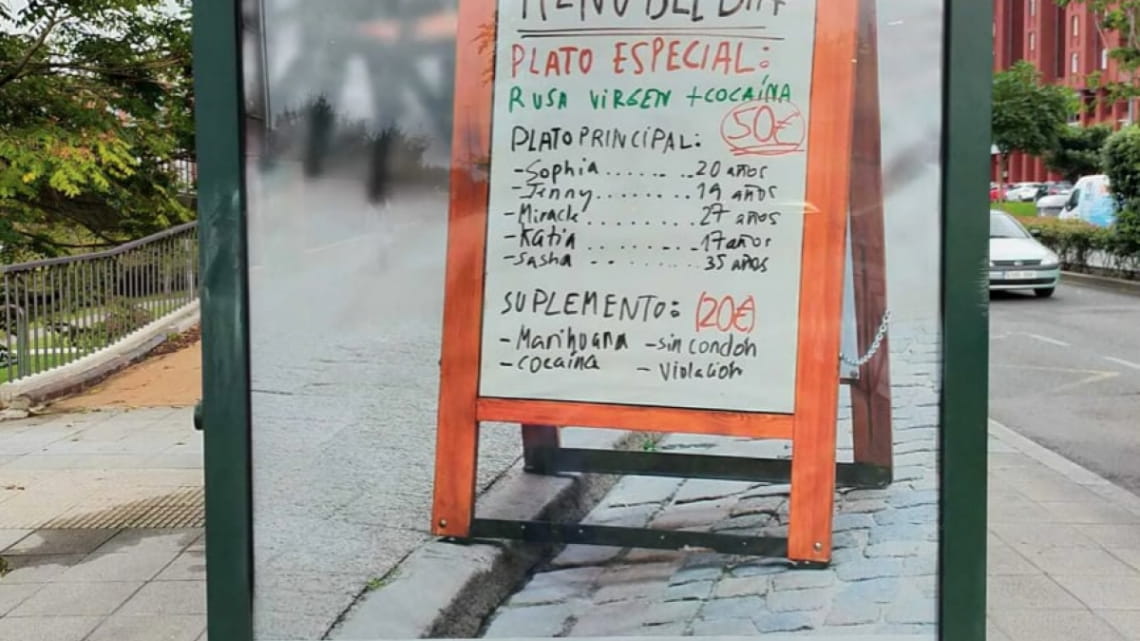 MENÚ DEL DÍA
PLATO ESPECIAL:
RUSA VIRGEN + COCAÍNA
50€
PLATO PRINCIPAL:
-Sophia........20 años
-Jenny........19 años
-Miracle........27 años
-Katia........17 años
-Sasha........35 años
SUPLEMENTO: (20€)
-Marihuana -sin condon
-cocaína -violacion